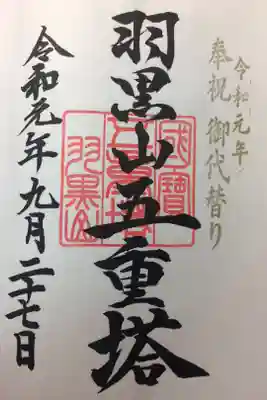 令和元年
奉祝 御代替り
羽黒山五重塔
國寶
羽黒山
令和元年九月二十七日